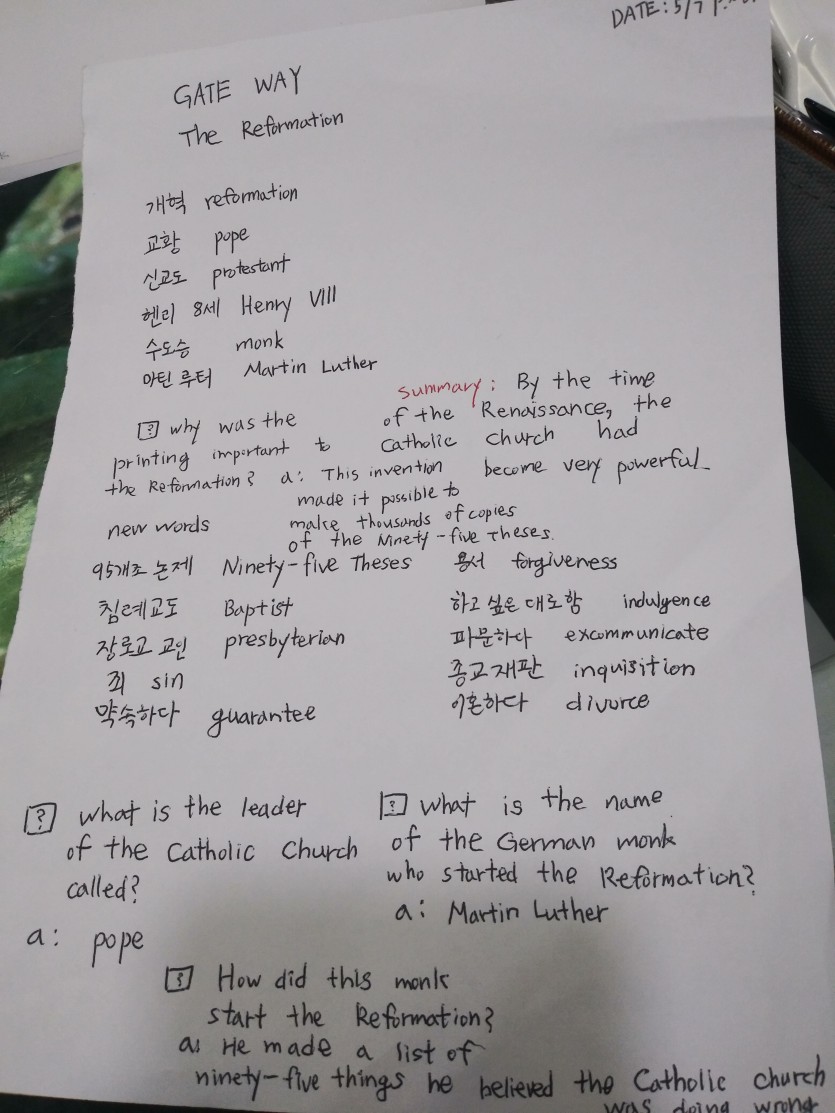 DATE: 5/7
GATE WAY
The Reformation
개혁 reformation
교황 pope
신교도 protestant
헨리 8세 Henry VIII
수도승 monk
마틴 루터 Martin Luther
? why was the
printing important to
the Reformation? a: This invention
made it possible to
make thousands of copies
of the Ninety-five Theses.
Summary: By the time
of the Renaissance, the
Catholic church had
become very powerful
new words
95개조 논제 Ninety-five Theses
침례교도 Baptist
장로교 교인 presbyterian
죄 sin
약속하다 guarantee
용서 forgiveness
하고 싶은 대로 함 indulgence
파문하다 excommunicate
종교재판 inquisition
이혼하다 divorce
? what is the leader
of the Catholic Church
called?
a: pope
? what is the name
of the German monk
who started the Reformation?
a: Martin Luther
? How did this monk
start the Reformation?
a: He made a list of
ninety-five things he believed the Catholic church
was doing wrong